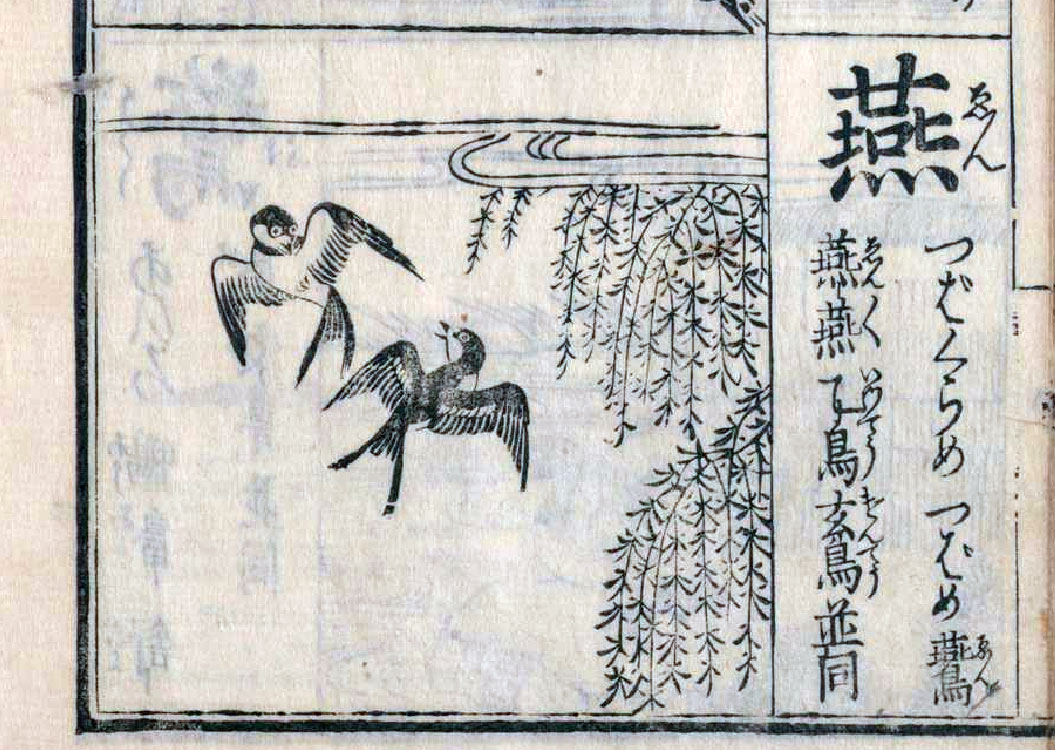 燕
ゑん
つばくらめ つばめ 鷰
ゑん
燕燕 乙鳥 玄鳥 並同
ゑん〱 いつてう げんてう